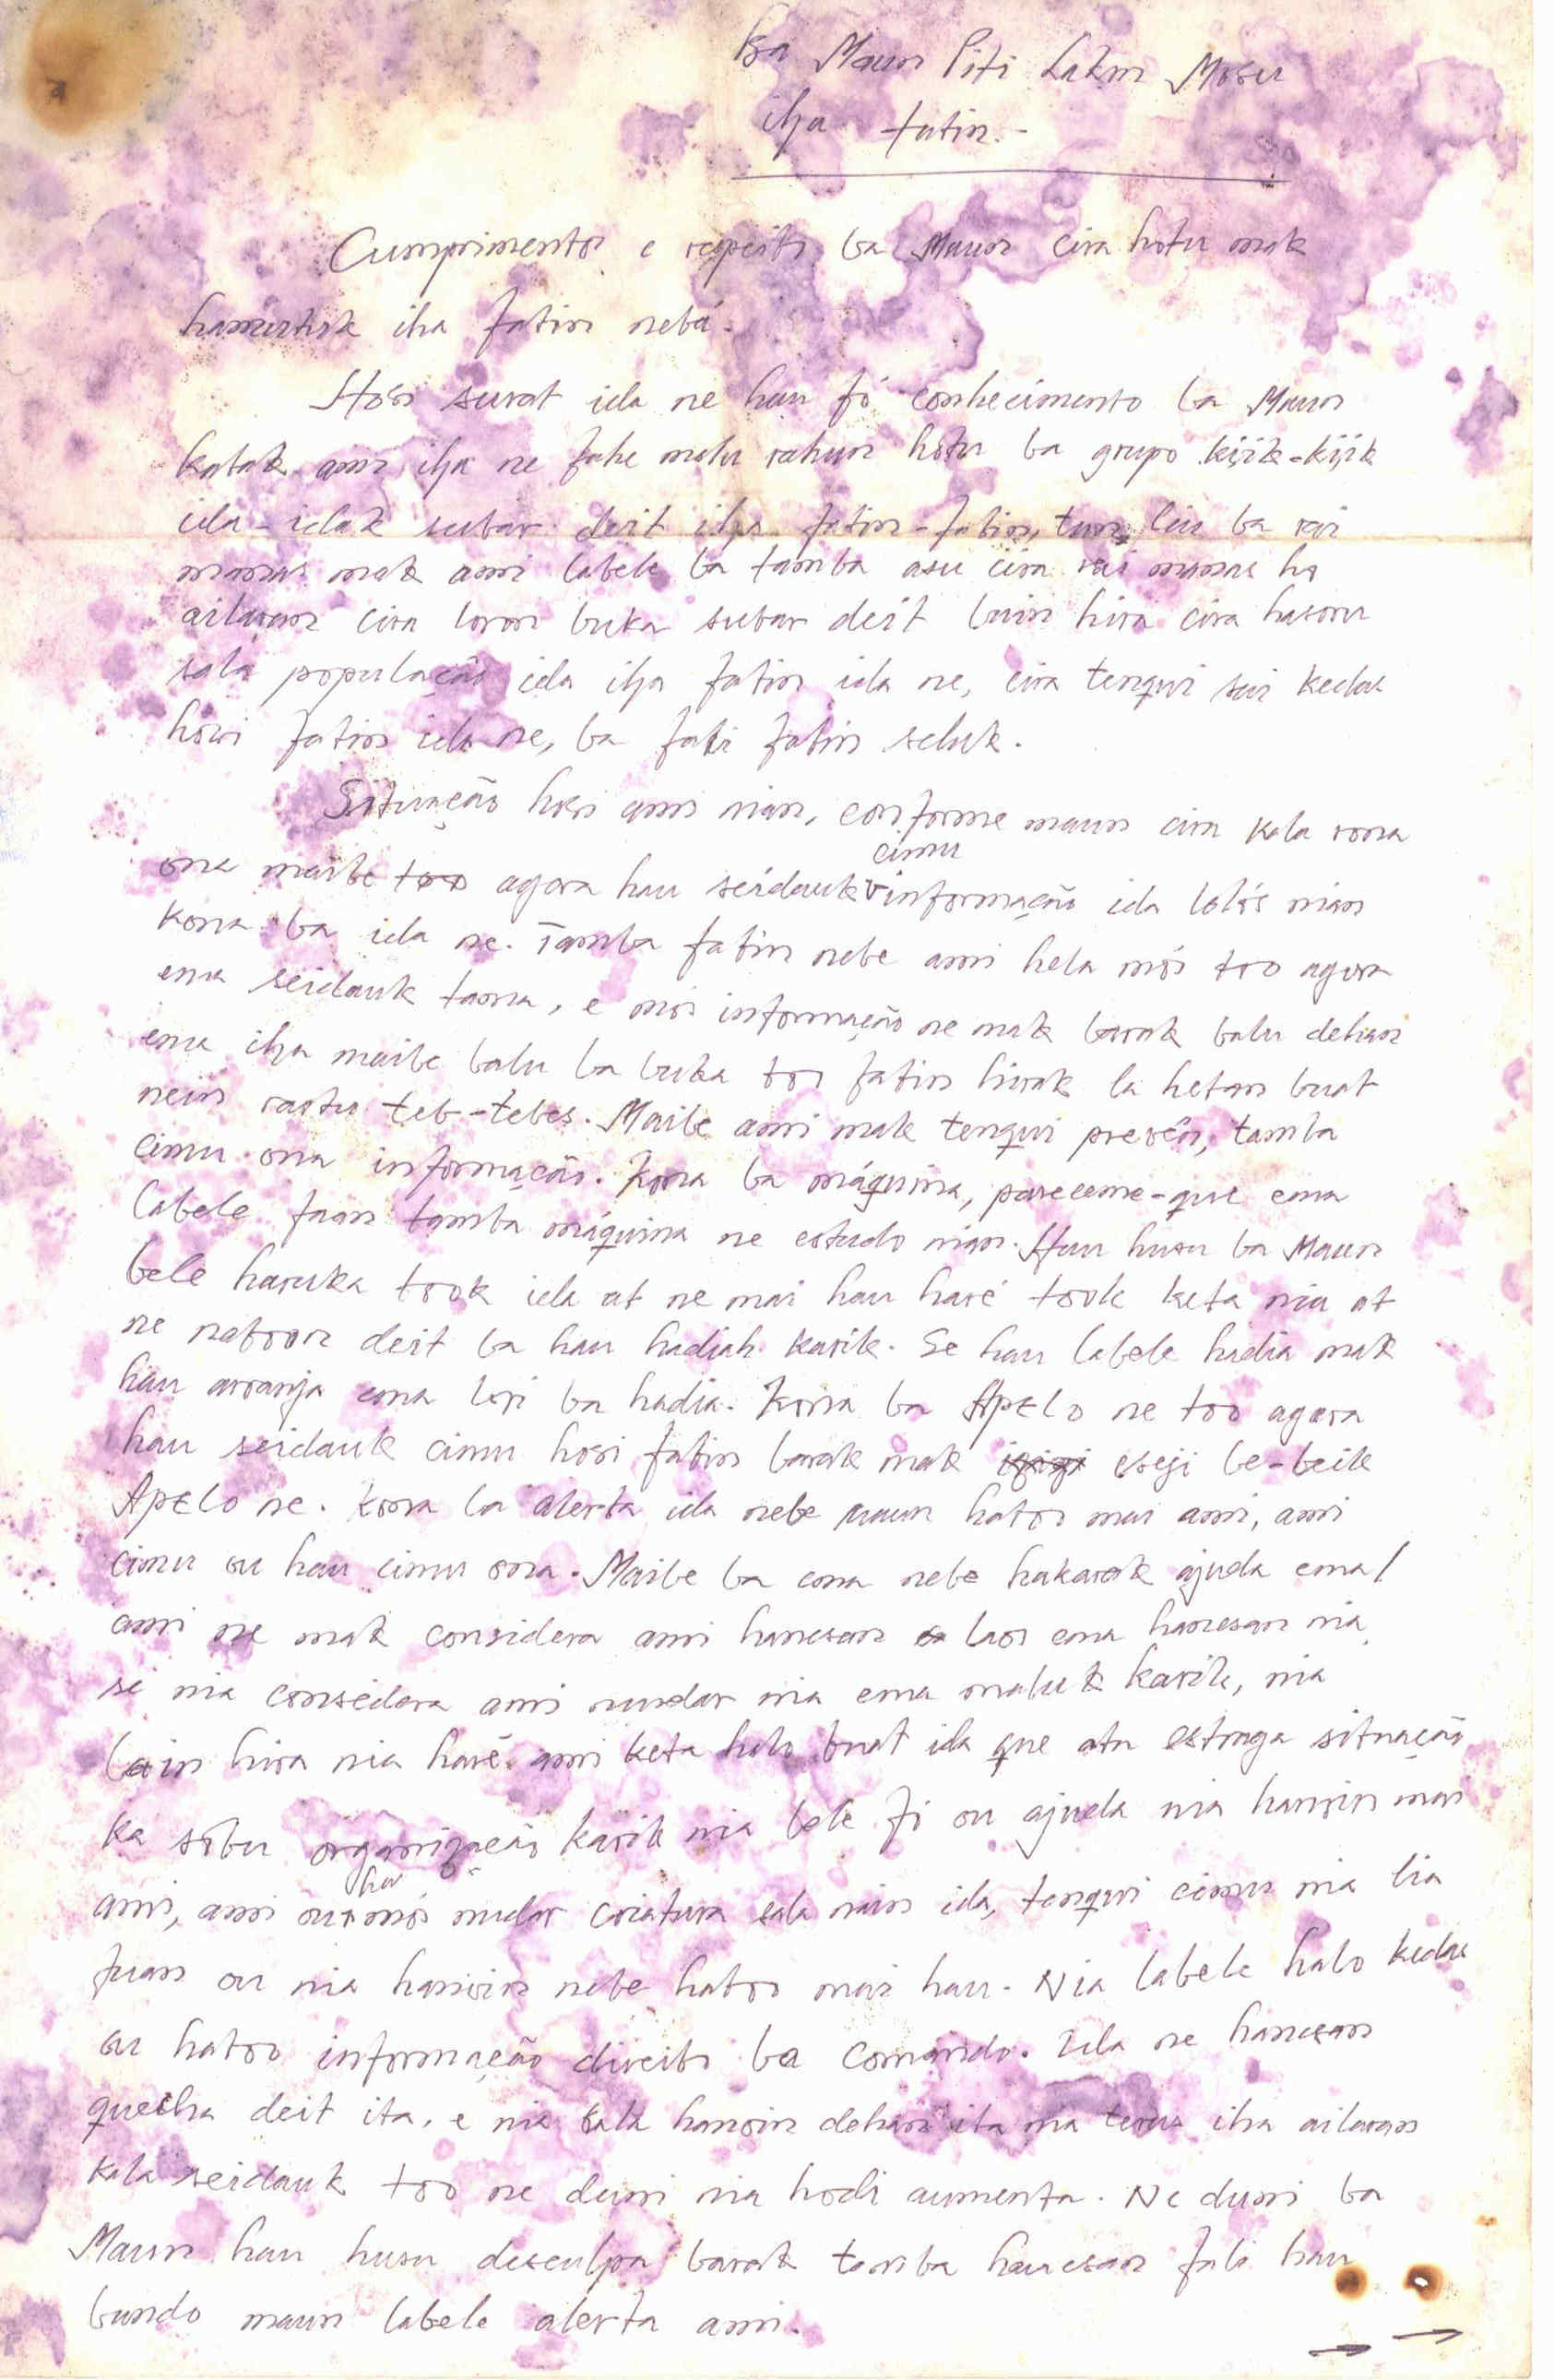 Ba Maun Piti Lakon Mosu
iha fatin.-
Cumprimentos e respeito ba Maun cira hotu mak
hamutuk iha fatin nebá.
Hosi surat ida ne hau fó conhecimento ba Maun
katak ami iha ne fahe malu rahun hotu ba grupo kiik-kiik
ida-idak subar deit iha fatin-fatin, tun liu ba rai
manas mak ami labele ba tamba asu cira rai manas ho
ailaran cira loron buka subar deit bain hira cira hasoru
sala população ida iha fatin ida ne, cira tenqui sai kedas
hosi fatin ida ne, ba fali fatin seluk.
Situação hosi ami nian, conforme maun cira kala rona
ona maibe agora hau seidauk cimu informação ida lolós nian
kona ba ida ne. Tamba fatin nebe ami hela mós too agora
ema seidauk tama, e mós informação ne mak barak balu dehan
ema iha maibe balu ba buka too fatin hirak la hetan buat
nein rastu teb-tebes. Maibe ami mak tenqui prevên, tamba
cimu ona informação. Kona ba máquina, pareceme-que ema
labele faan tamba máquina ne estudo nian. Hau husu ba Maun
bele haruka took ida at ne mai hau haré took keta nia at
ne natoon deit ba hau hadiah karik. Se hau labele hadia mak
hau arranja ema lori ba hadia. Kona ba APELO ne too agora
hau seidauk cimu hosi fatin barak mak eseji be-beik
APELO ne. Kona ba alerta ida nebe maun hatoo mai ami, ami
cimu ou hau cimu ona. Maibe ba ema nebe hakarak ajuda ema/
ami ne mak considera ami hanesan laos ema hanesan nia
se nia considera ami nundar nia ema maluk karik, nia
bain hira nia haré ami keta halo buat ida que atu estraga situação
ka sobu organização karik nia bele fó ou ajuda nia hanoin mai
ami, ami ou hau mós nudar criatura sala nain ida, tenqui cimu nia lia
fuan ou nia hanoin nebe hatoo mai hau. Nia labele halo kedas
ou hatoo informação direito ba comando. Ida ne hanesan
queicha deit ita, e nia kala hanoin dehan ita nia terus iha ailaran
kala seidauk too ne duni nia hodi aumenta. Ne duni ba
Maun hau husu desculpa barak tamba hanesan fali hau
bundo maun labele alerta ami.